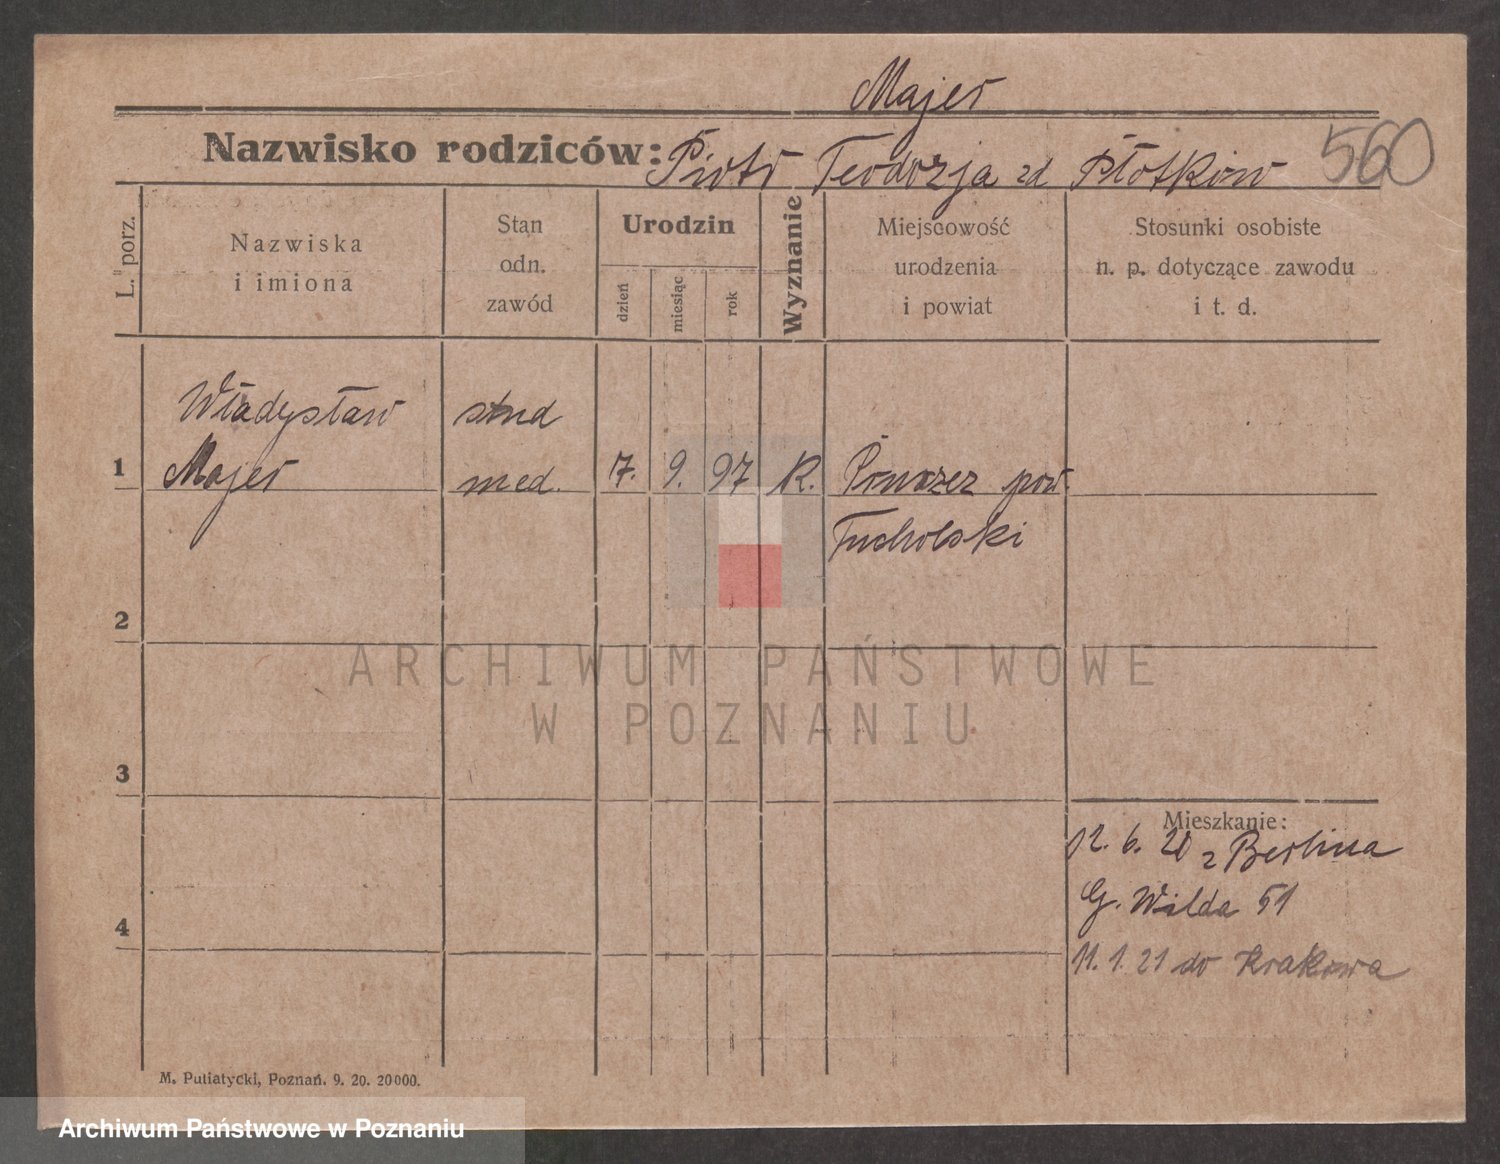 Majer
Nazwisko rodziców: Piotr Teodozja zd Płotków 560
L. porz.
Nazwiska
i imiona
Stan
odn.
zawód
Urodzin
dzień
miesiąc
rok
Wyznanie
Miejscowość
urodzenia
i powiat
Stosunki osobiste
n. p. dotyczące zawodu
i t. d.
Władysław stud
1 Majer med. 7. 9. 97 K. pow
Tucholski
2
ARCHIWUM PAŃSTWOWE
W POZNANIU
3
Mieszkanie:
12. 6. 20 z Berlina
G. Wilda 51
4
11. 1. 21 do Krakowa
M. Putiatycki, Poznań. 9. 20. 20000.
Archiwum Państwowe w Poznaniu